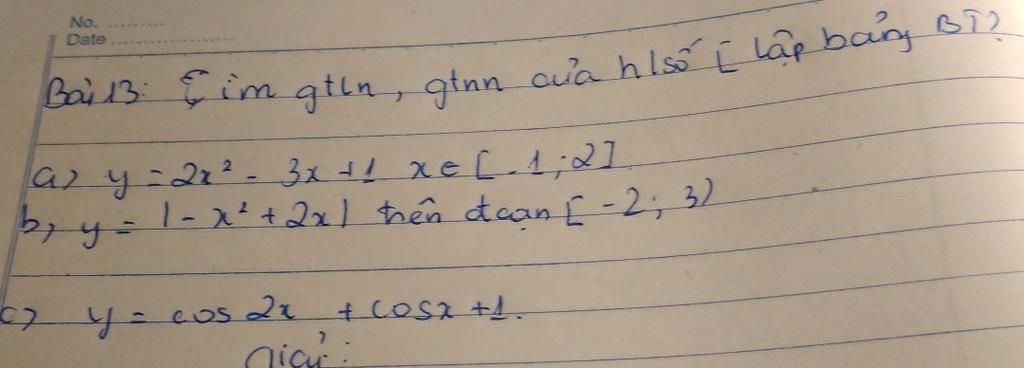 No. ..........
Date ....................
Bài 13: Tìm gtln, gtnn của h/số [ lập bảng BT]
a) y = 2x² - 3x + 1 x ∈ [-1; 2]
b, y = |-x² + 2x| trên đoạn [-2; 3]
c) y = cos 2x + cosx + 1.
Giải: